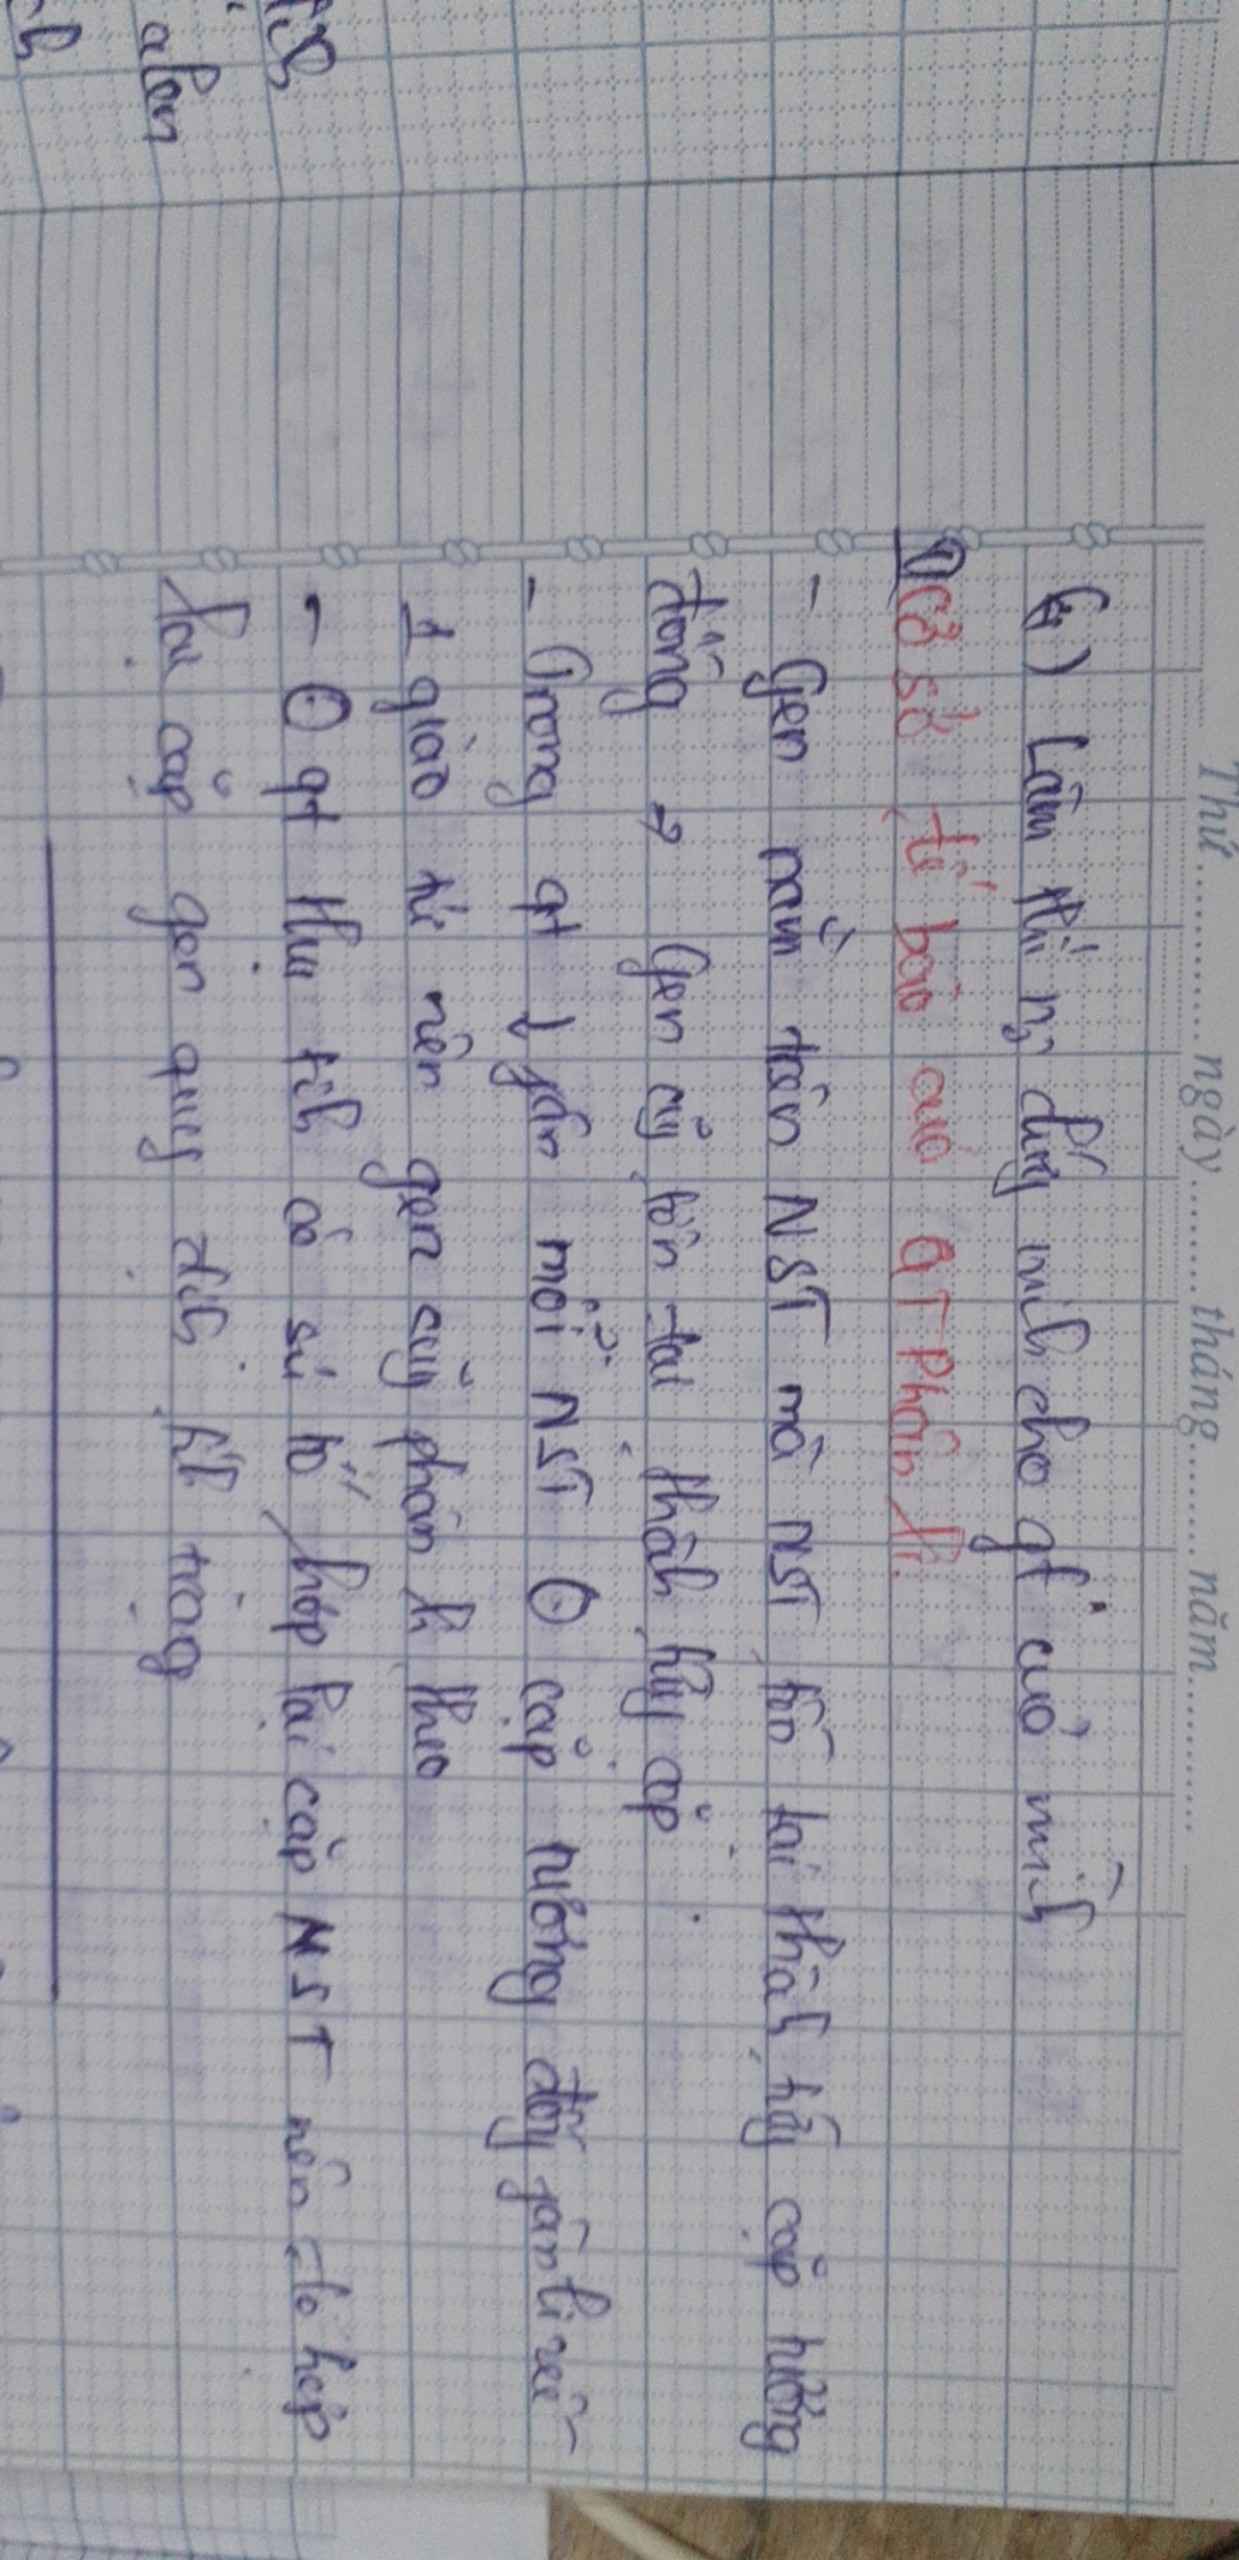 Thứ.........ngày.........tháng.........năm.........
G) Làm thí n₀ chứng minh cho gt của mình
Cơ sở tế bào của QT Phân li
- Gen nằm trên NST mà NST tồn tại thành từng cặp tương
đồng → Gen cũng tồn tại thành từng cặp
- Trong gt ↓ phân mỗi NST ở cặp tương đồng phân li về
1 giao tử nên gen cũng phân li theo
- Ở qt thụ tinh có sự tổ hợp lại cặp NST nên tổ hợp
lại cặp gen quy định tt trạng
alen